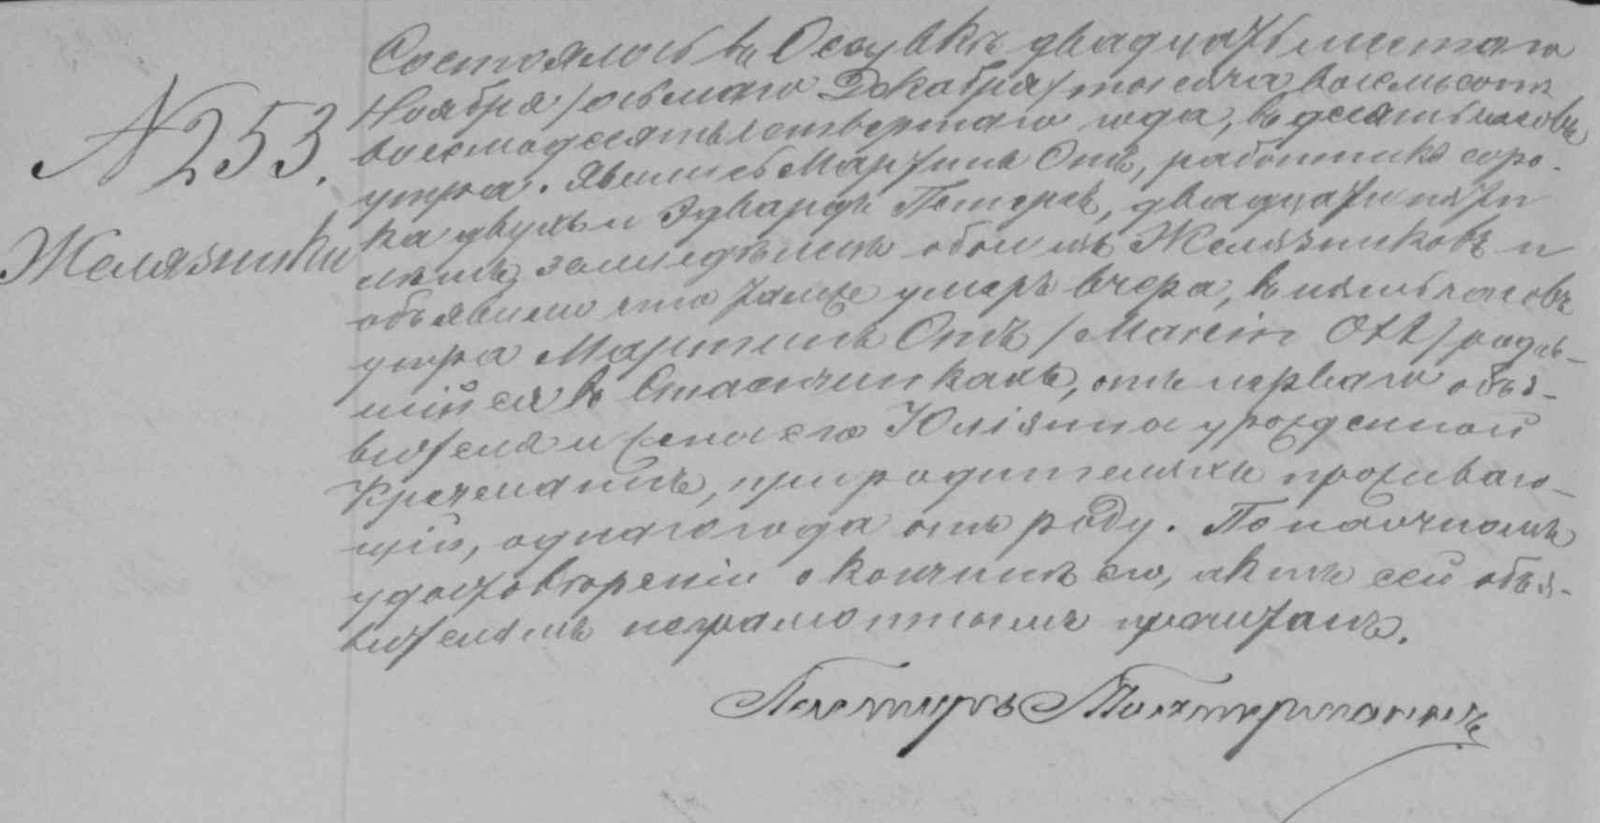 № 253.
Желязники
Состоялось въ Осувкѣ двадцать шестаго
Ноября /осьмаго Декабря/ тысяча восемьсотъ
восемьдесятъ четвертаго года, въ десять часовъ
утра. Явились Мартинъ Отъ, работникъ соро-
ка двухъ и Эдвардъ Петеръ, двадцати пяти
лѣтъ, земледѣлецъ обои изъ Желязниковъ и
объявили что тамже умеръ вчера, въ пять часовъ
утра Мартинъ Отъ /Marcin Ott/ родив-
шійся въ, отъ перваго объя-
вителя и жены его Юліянна урожденной
при родителяхъ прожива-
щій, одного года отъ роду. По наочномъ
удостовѣреніи о кончинѣ его, актъ сей объя-
вителямъ неграмотнымъ прочитанъ.
Пасторъ